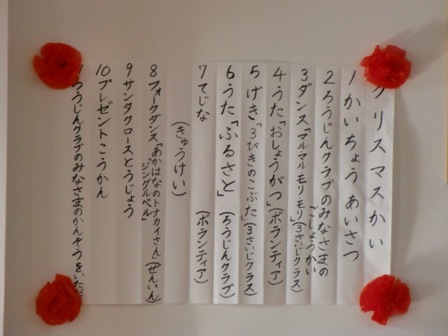 クリスマスかい
1 かいちょう あいさつ
2 ろうじんクラブのみなさまの
ごしょうかい
3 ダンス「マルマルモリモリ」(3さいじクラス)
4 うた「おしょうがつ」(ボランティア)
5 げき「3びきのこぶた」(3さいじクラス)
6 うた「ふるさと」(ろうじんクラブ)
7 てじな (ボランティア)
(きゅうけい)
8 フォークダンス「あかはなのトナカイさん
ジングルベル」(ぜんいん)
9 サンタクロースとうじょう
10 プレゼントこうかん
ろうじんクラブのみなさまのかんそうを